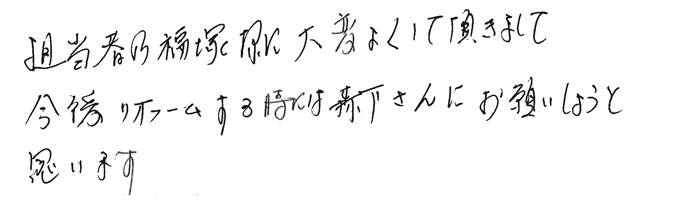 担当者の福塚様に大変よくして頂きまして
今後リホームする時には森下さんにお願いしようと
思います